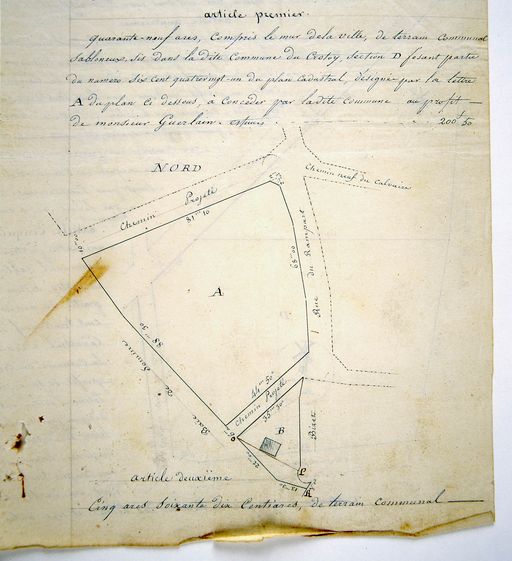 article premier.
Quarante-neuf ares, Compris le mur dela ville, de terrain Communal
Sabloneux. Sis dans la dite Commune du Crotoy, Section D fesant partie
du numero Six Cent quatrevingt-un du plan Cadastral, désigné par la lettre
A du plan Ci dessous, à Concéder par ladite Commune au profit
de monsieur Guerlain. estimés 200 50
NORD
Chemin neuf du Calvaire
Chemin Projeté
81 m 10
10 m 00
68 m 00
Rue du Rampart
A
88 m 30
Baie de Somme
44 m 50
Chemin Projeté
35 m 30
B
Biret
article deuxième
Cinq ares Soixante dix Centiares, de terrain Communal